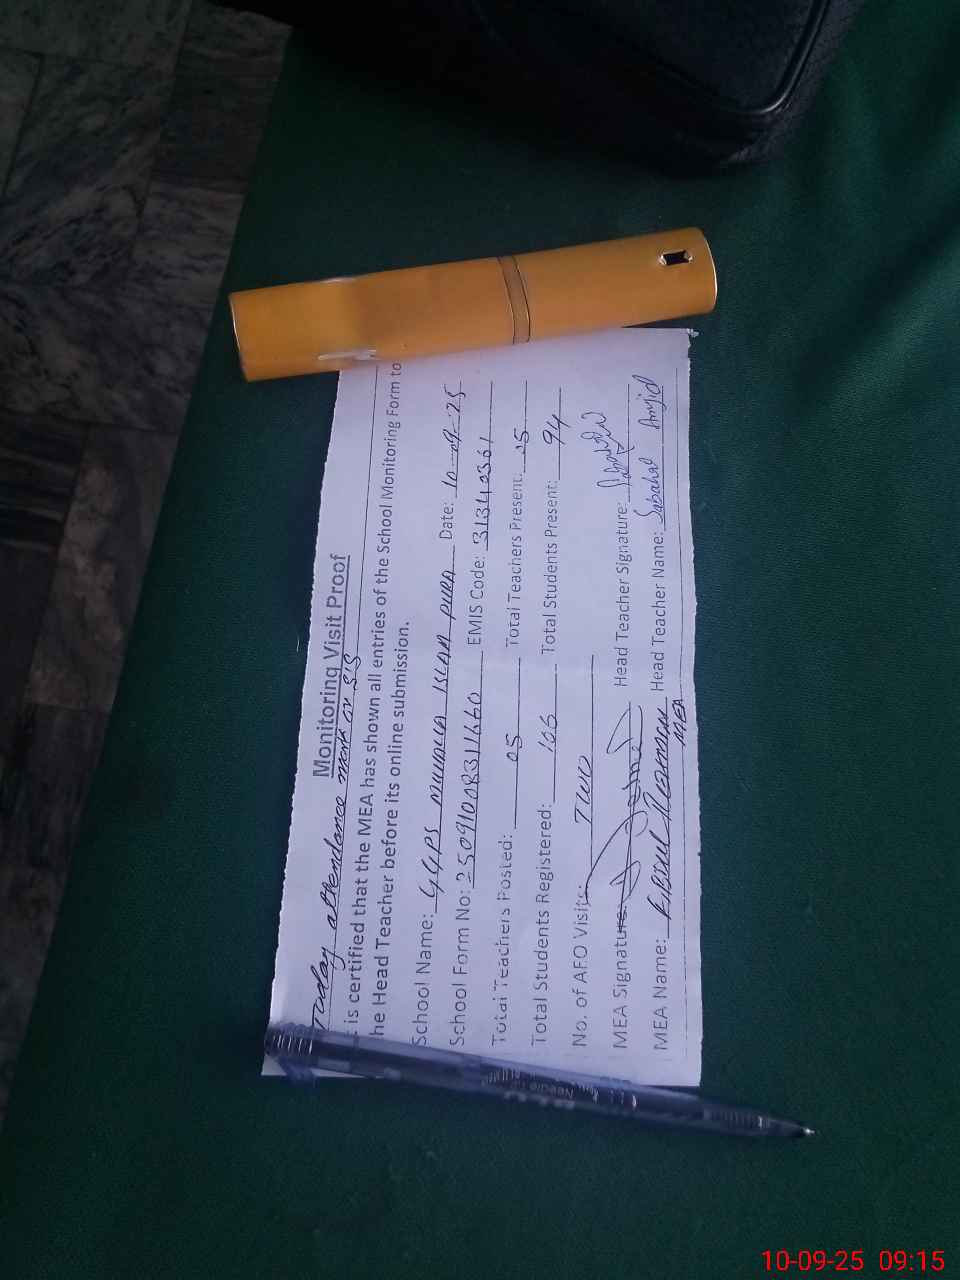 Monitoring Visit Proof
Today attendance mark on SIS
is certified that the MEA has shown all entries of the School Monitoring Form to
he Head Teacher before its online submission.
School Name: GGPS MUHALLA ISLAM PURA Date: 10-09-25
School Form No: 25091008311660 EMIS Code: 31340361
Total Teachers Posted: 05 Total Teachers Present: 05
Total Students Registered: 106 Total Students Present: 94
No. of AFO Visits: TWO
MEA Signature: Head Teacher Signature:
MEA Name: Rehman Head Teacher Name: Sabahat Amjid
MEA
Needle
10-09-25 09:15